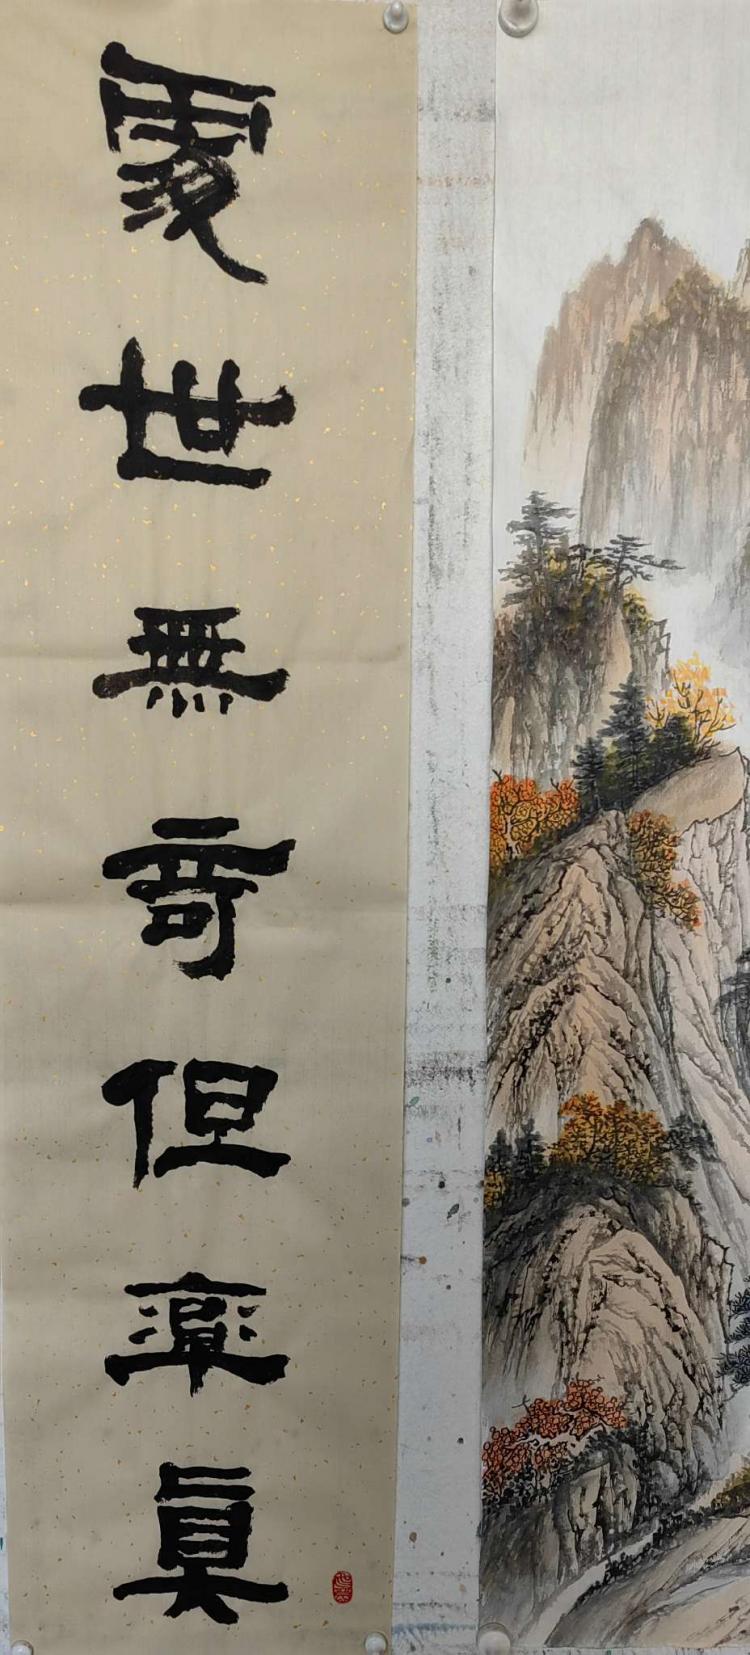 處世無奇但率真